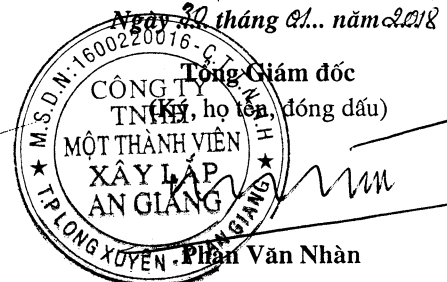 Ngày 30 tháng 01... năm 2018
Tổng Giám đốc
(Ký, họ tên, đóng dấu)
M.S.D.N:1600220016-C.T.T.N.H.H
CÔNG TY
TNHH
MỘT THÀNH VIÊN
XÂY LẮP
AN GIANG
T.P LONG XUYÊN - T. AN GIANG
Phan Văn Nhàn